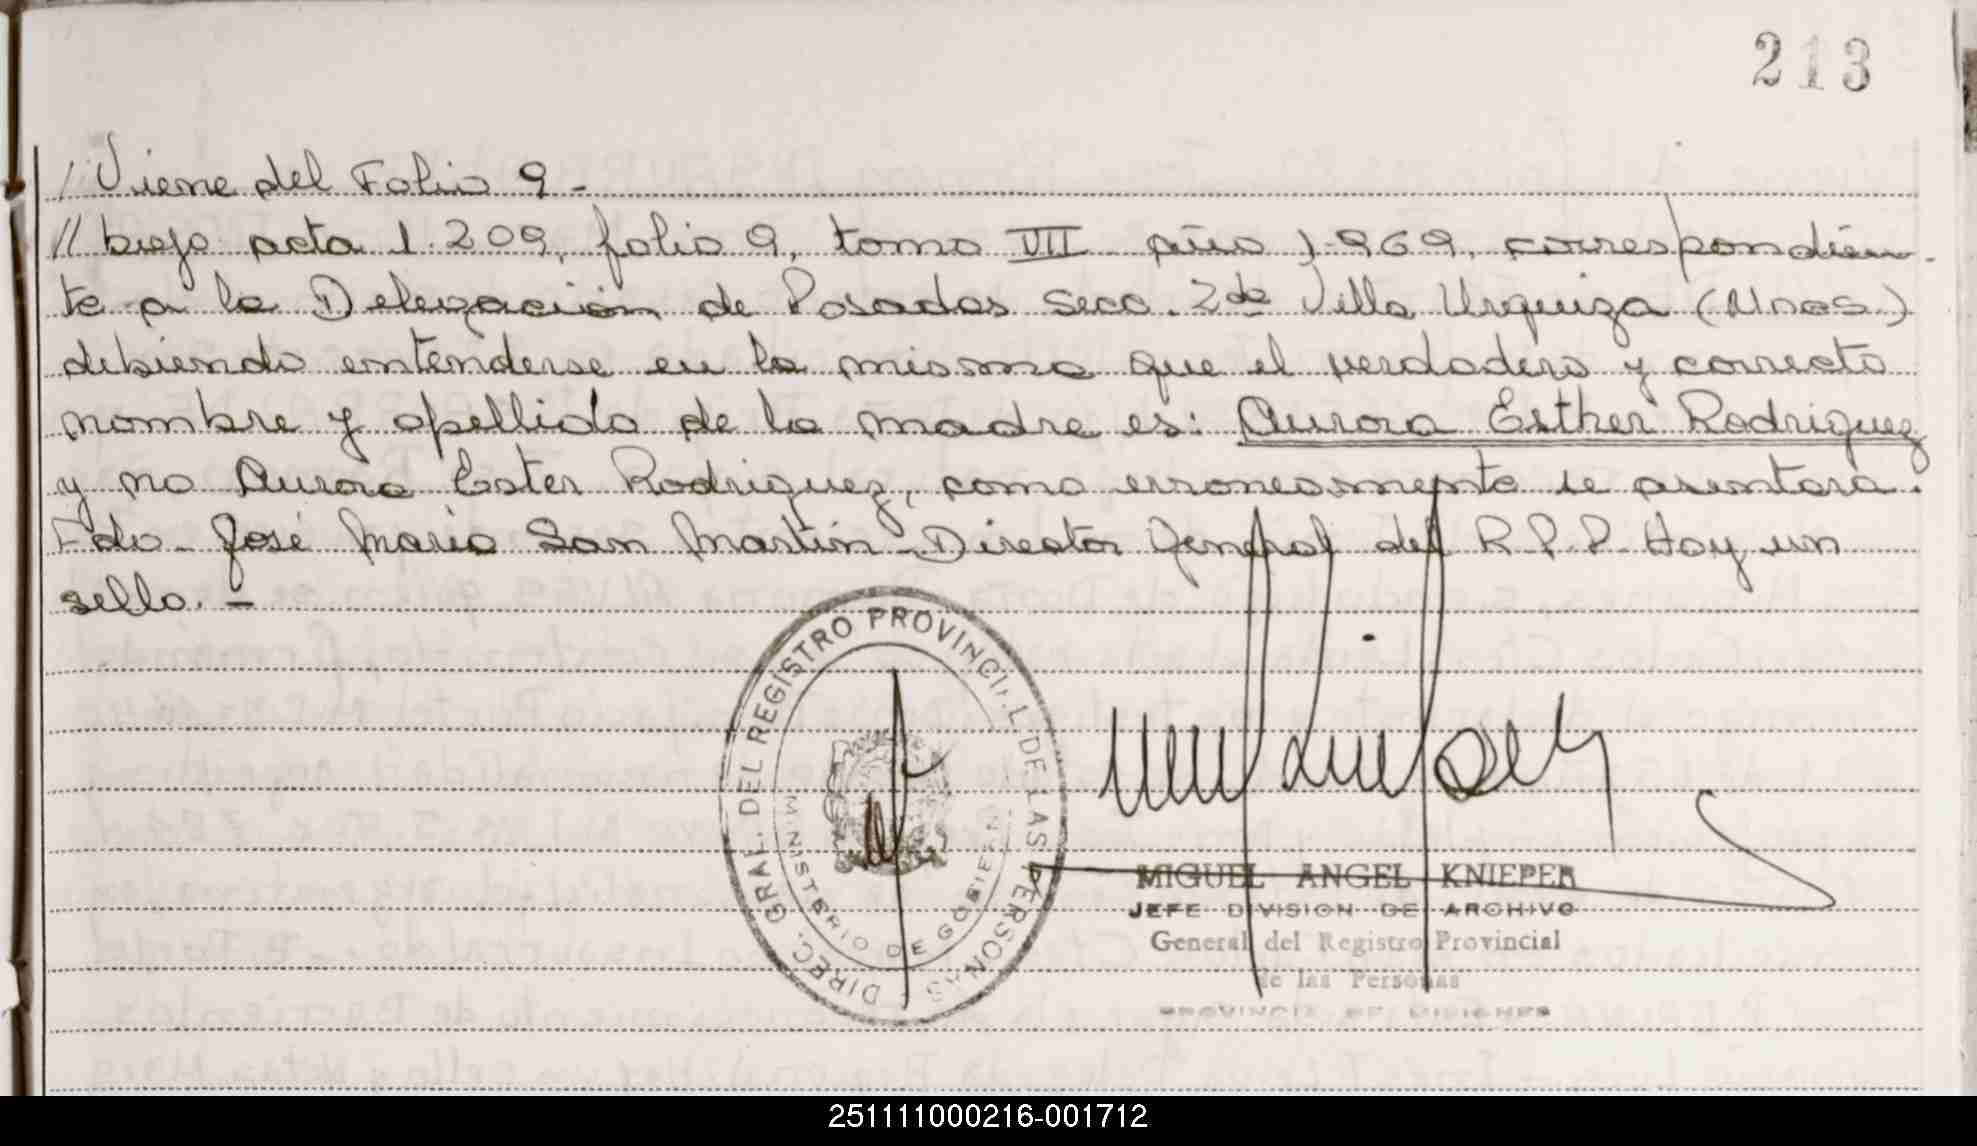 213
/ Viene del Folio 9 -
// bajo acta 1.209, folio 9, tomo VII año 1.969, correspondien-
te a la Delegación de Posadas Secc. 2da Villa Urquiza (Mnes.)
debiendo entenderse en la misma que el verdadero y correcto
nombre y apellido de la madre es: Aurora Esther Rodriguez
y no Aurora Ester Rodriguez, como erroneamente se asentara.
Fdo. José Mario San Martín - Director General del R.P.P. Hay un
sello. -
DIREC. GRAL. DEL REGISTRO PROVINCIAL DE LAS PERSONAS
MINISTERIO DE GOBIERNO
MIGUEL ANGEL KNIEPER
JEFE DIVISION DE ARCHIVO
General del Registro Provincial
de las Personas
PROVINCIA DE MISIONES
251111000216-001712